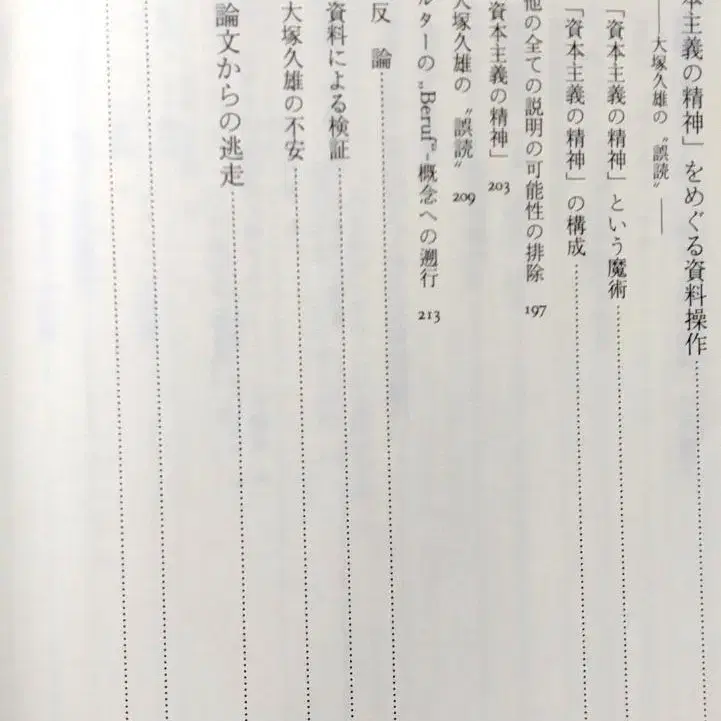 本主義の精神」をめぐる資料操作
――大塚久雄の〝誤読〟――
「資本主義の精神」という魔術
「資本主義の精神」の構成
他の全ての説明の可能性の排除 197
資本主義の精神」 203
大塚久雄の〝誤読〟 209
ルターの „Beruf“-概念への遡行 213
反論
資料による検証
大塚久雄の不安
論文からの逃走